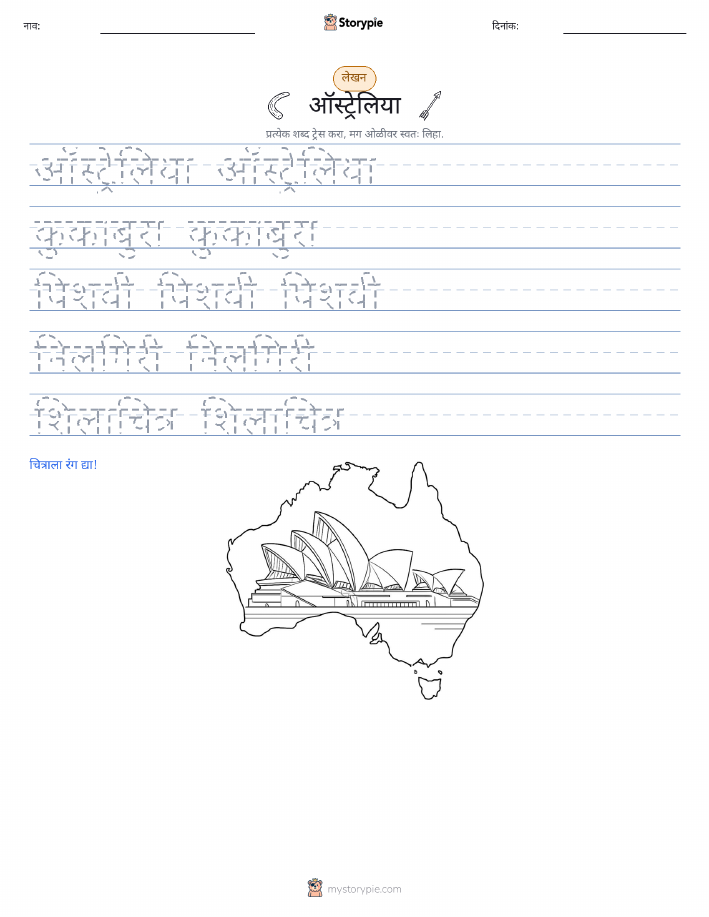 नाव: Storypie दिनांक:
लेखन
ऑस्ट्रेलिया
प्रत्येक शब्द ट्रेस करा, मग ओळीवर स्वतः लिहा.
ऑस्ट्रेलिया ऑस्ट्रेलिया
कुकाबुरा कुकाबुरा
पिशवी पिशवी पिशवी
निलगिरी निलगिरी
शिलाचित्र शिलाचित्र
चित्राला रंग द्या!
mystorypie.com